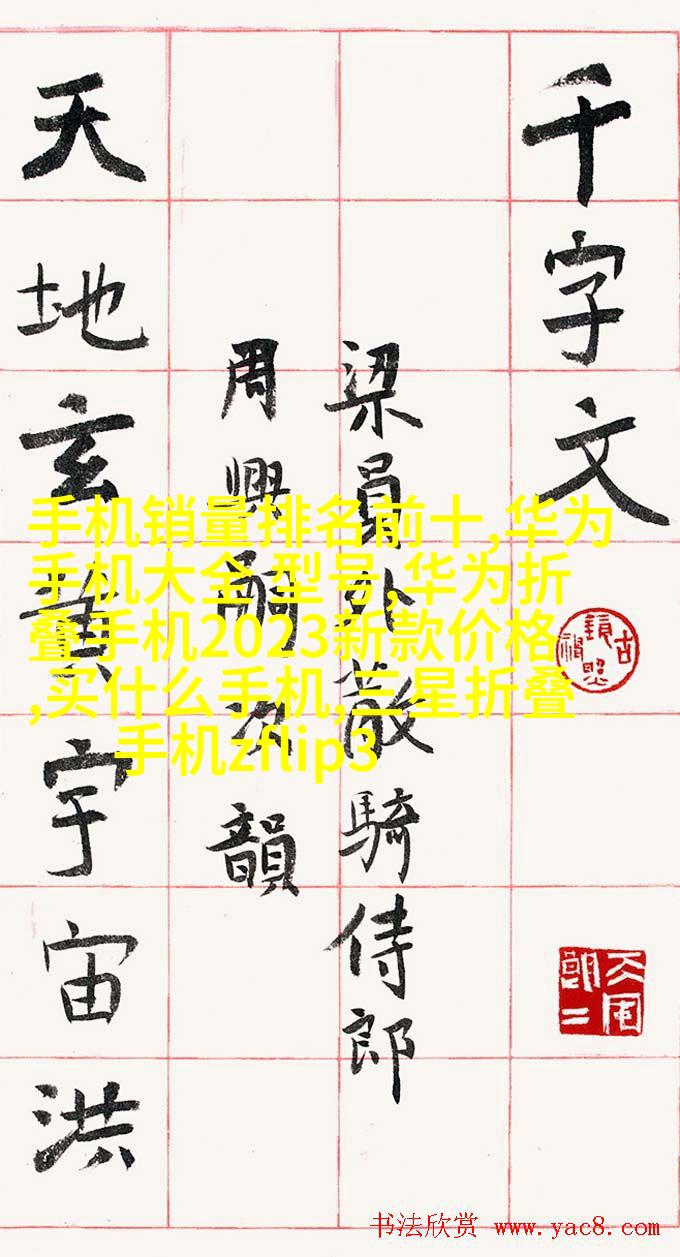 千字文
梁員外散騎侍郎
周興嗣次韻
天地玄黃宇宙洪
手机销量排名前十,华为
手机大全 型号,华为折
叠手机2023新款价格
,买什么手机,三星折叠
手机zflip3
书法欣赏 www.yac8.com